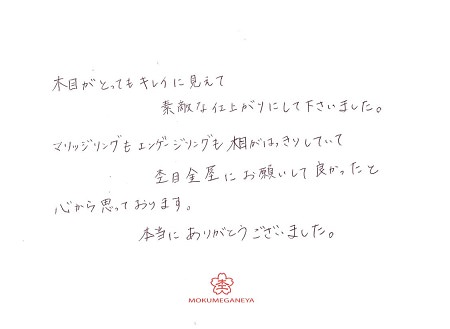 木目がとってもキレイに見えて
素敵な仕上がりにして下さいました。
マリッジリングもエンゲージリングも相がはっきりしていて
杢目金屋にお願いして良かったと
心から思っております。
本当にありがとうございました。
杢
MOKUMEGANEYA